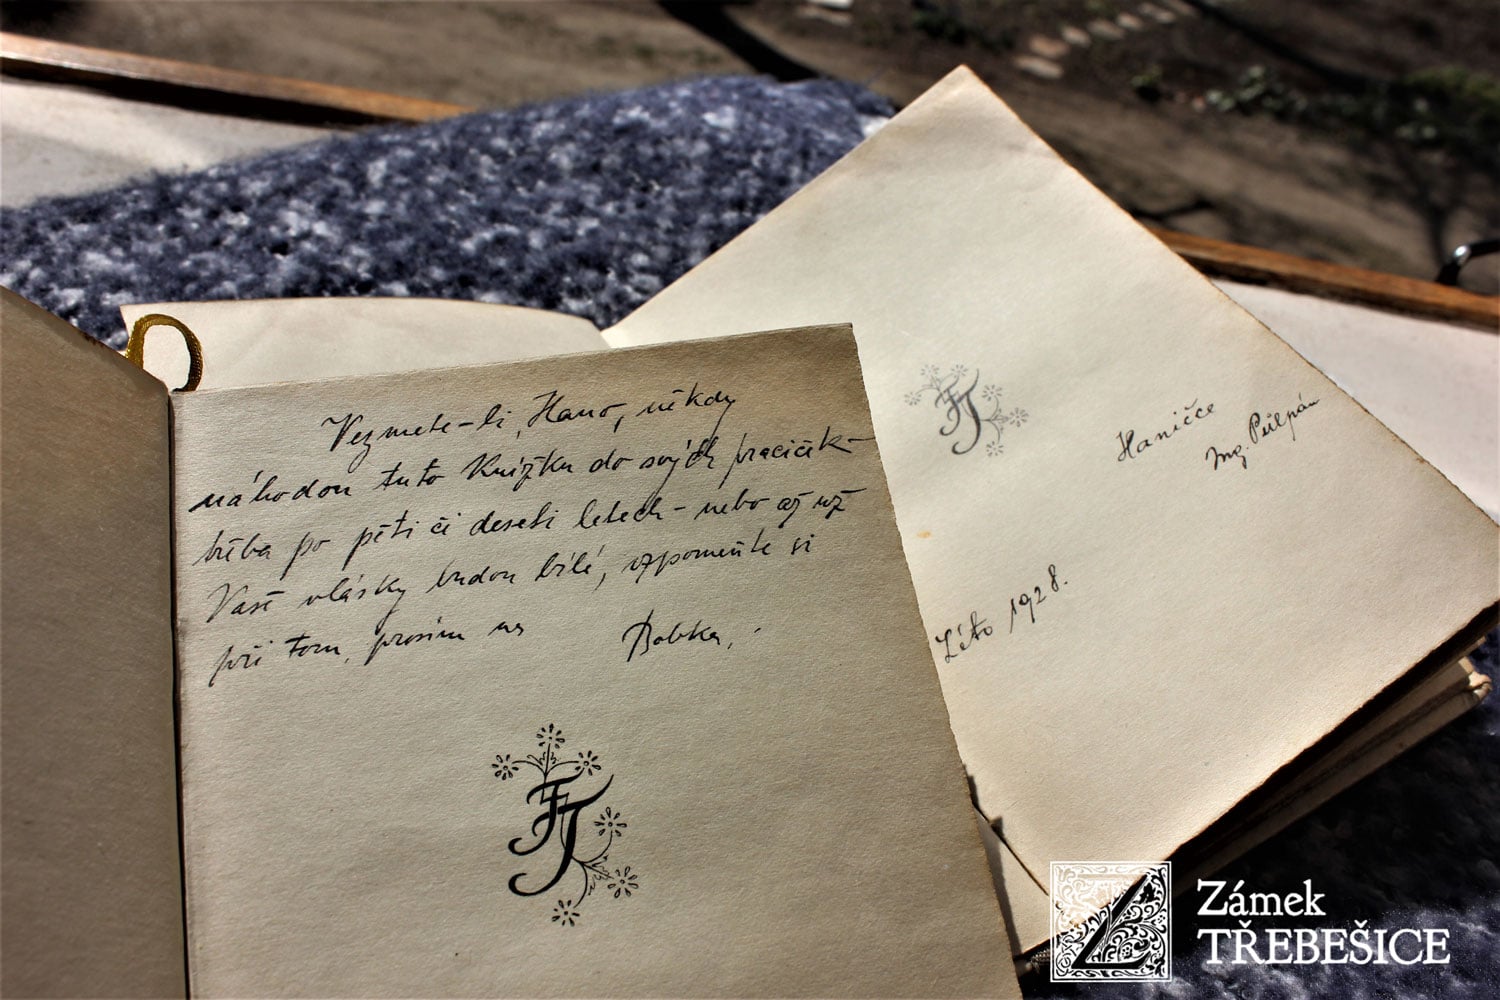 Vezmete-li, Hano, někdy
náhodou tuto knížku do svých praciček-
třeba po pěti či deseti letech - nebo až už
Vaše vlásky budou bílé, vzpomeňte si
při tom, prosím na Bobka.
FJ
FJ
Haničce
Ing.
Léto 1928.
Z
Zámek
TŘEBEŠICE